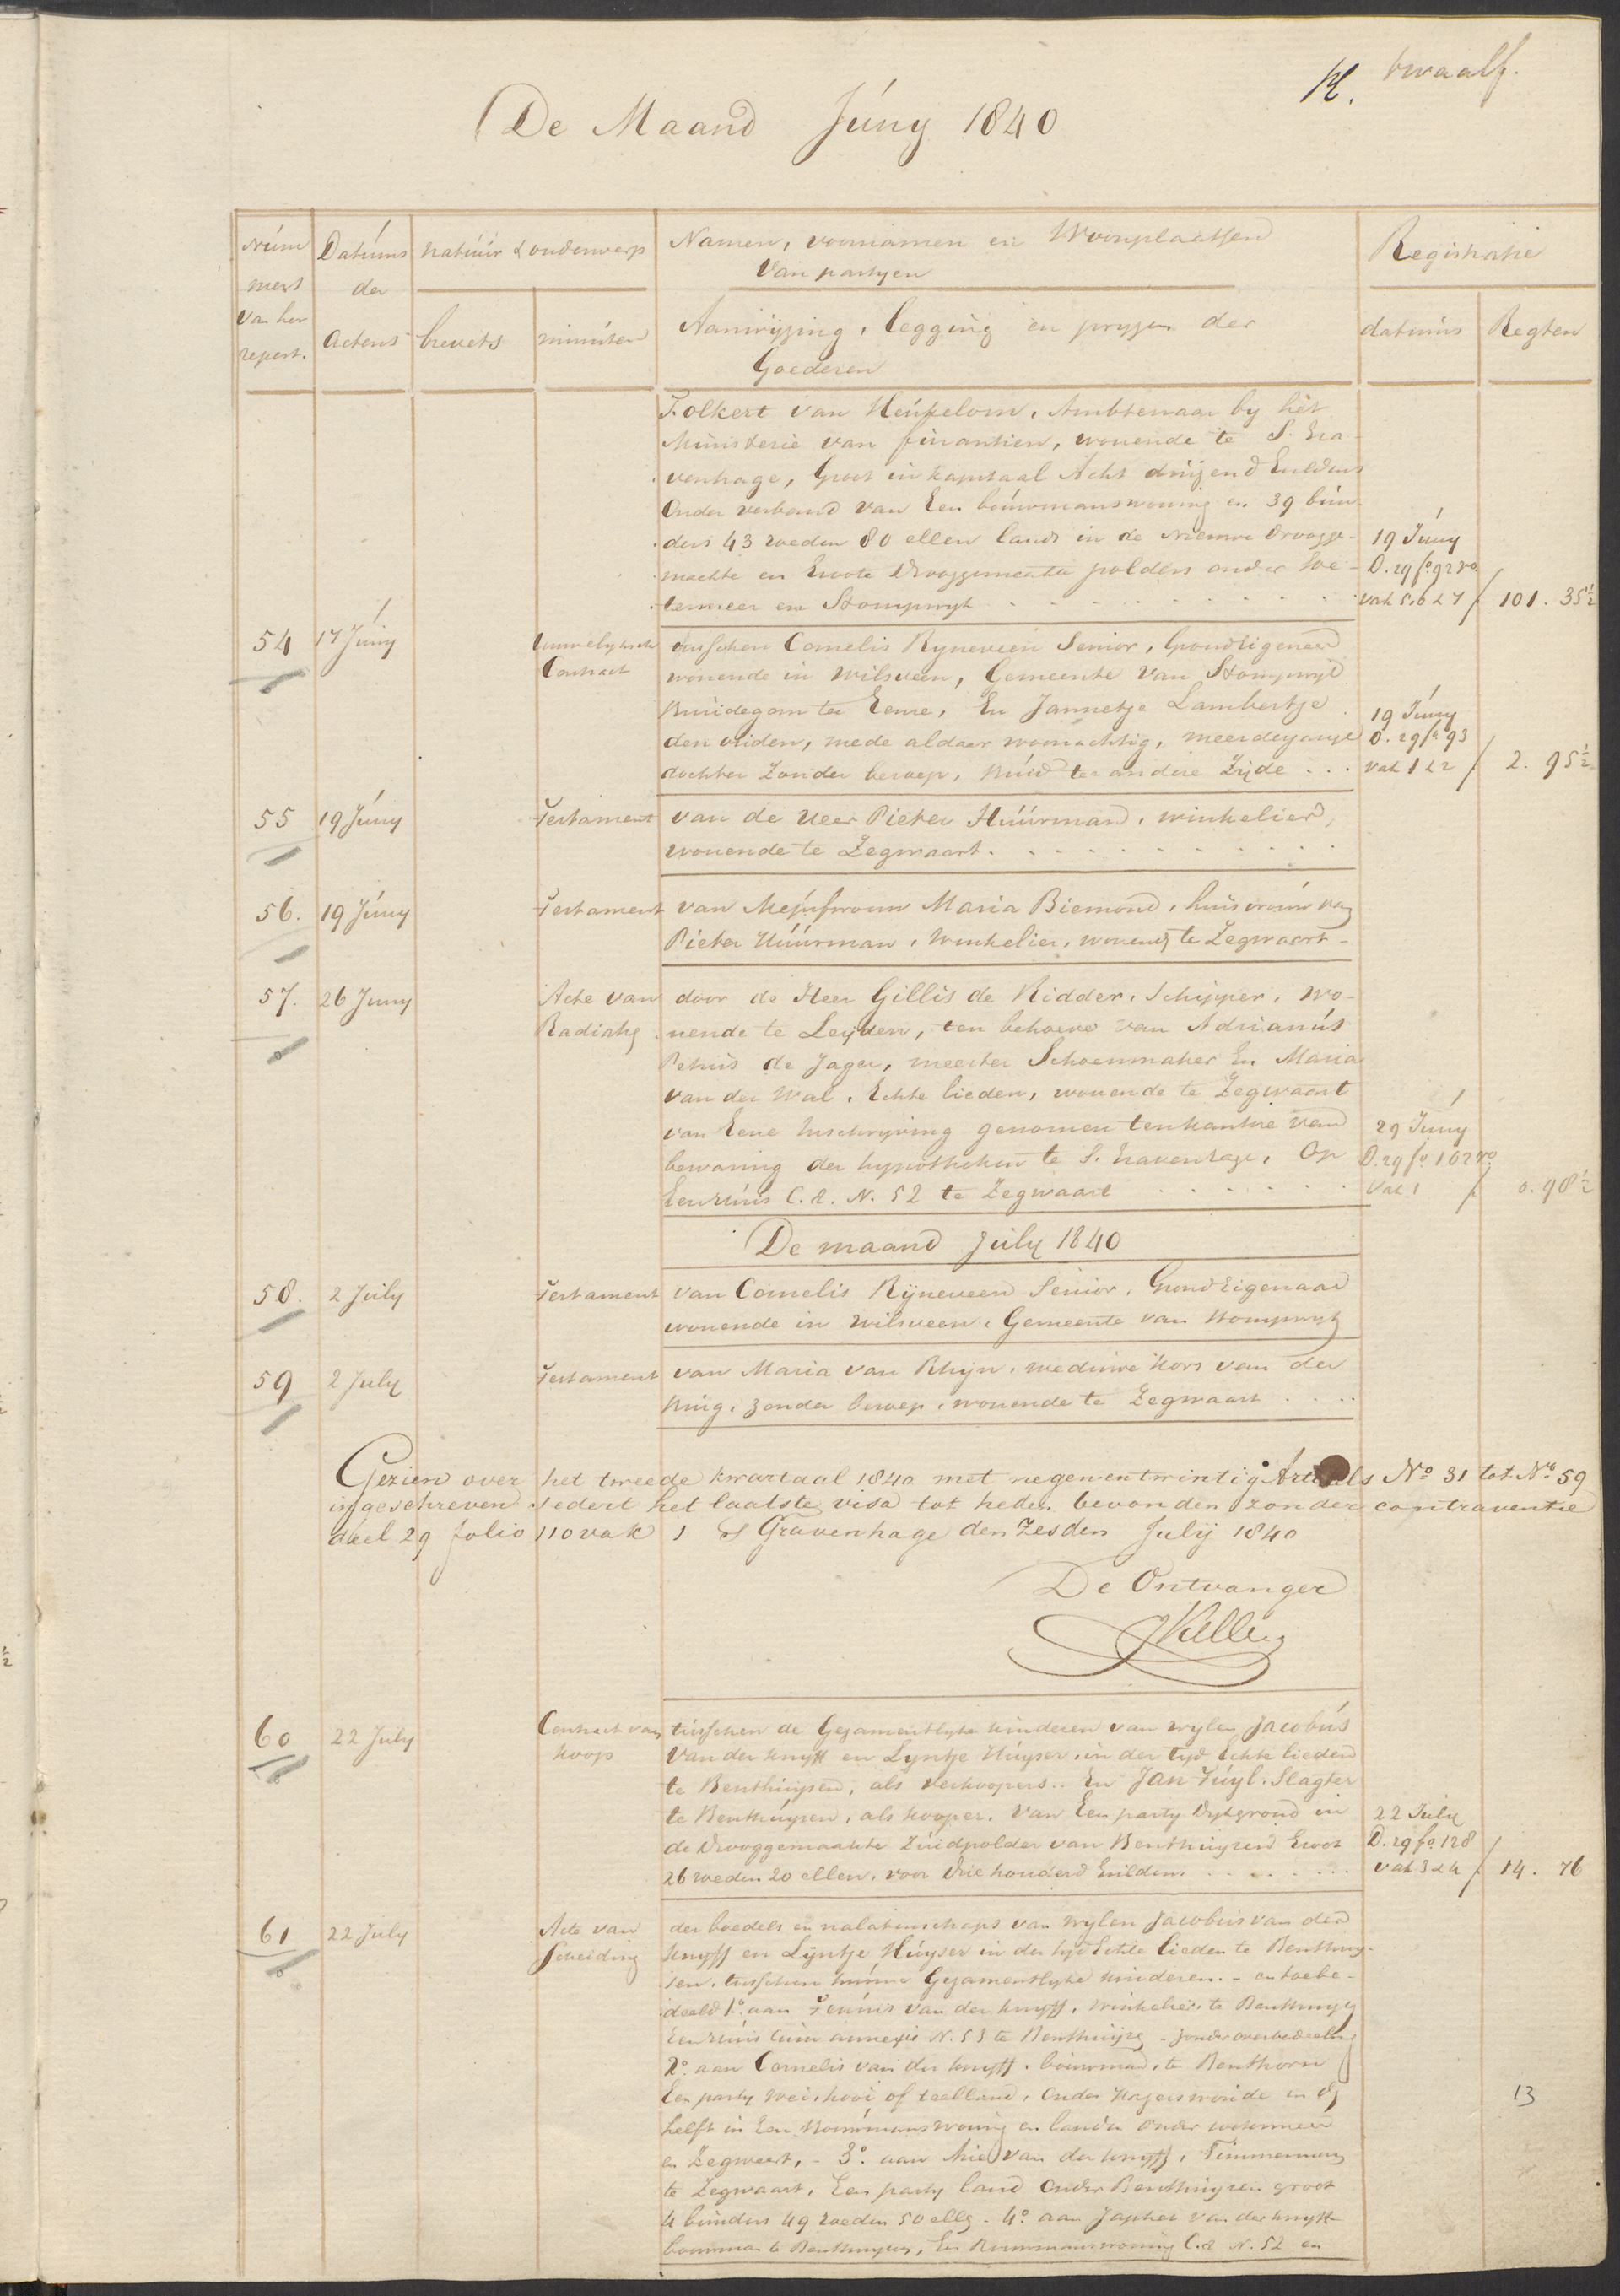 12. twaalf.
De Maand Júny 1840
Núm
mers
van het
repert.
Datúms
der
actens
natúúr & onderwerp
brevets
minúten
Namen, voornamen en Woonplaatsen
Van partyen
Aanwyzing, legging en pryzen der
Goederen
Registratie
datúms
Regten
Folkert van Heúkelom, Ambtenaar by het
Ministerie van finantien, wonende te S. Gra-
venhage, Groot in kapitaal Acht duizend Guldens
Onder verband van Een boúwmanswoning en 39 bún-
ders 43 roeden 80 ellen lands in de Nieuwe Drooge-
maakte en Groote Drooggemaakte polders onder Soe-
termeer en Stompwyk
19 Júny
D. 29 fo. 92 vo
vak 5. 6 & 7 f 101. 35½
54 17 Júny Huwelyksch tusschen Cornelis Ryneveen Senior, Grondeigenaar
Contract wonende in Wilsveen, Gemeente van Stompwyk
Bruidegom ter Eenre, En Jannetje Lambertje
den ouden, mede aldaar woonachtig, meerderjarige
dochter Zonder beroep, Bruid ter andere Zijde . . .
19 Júny
D. 29 fo 93
vak 1 & 2 f 2. 95½
55 19 Júny Testament van de Heer Pieter Húúrman, winkelier,
wonende te Zegwaart.
56. 19 Júny Testament van Mejufvrouw Maria Biemond, huisvrouw van
Pieter Húúrman, Winkelier, wonende te Zegwaart -
57. 26 Juny Acte van door de Heer Gillis de Ridder, Schipper, wo-
Radiatie nende te Leyden, ten behoeve van Adrianús
Petrus de Jager, meester Schoenmaker En Maria
van der Wal, Echte lieden, wonende te Zegwaart
van Eene Inschryving genomen ten kantore van
bewaring der hypotheken te S. Gravenhage, Op
Een Húis C. A. N. 52 te Zegwaart
29 Júny
D. 29 fo 102 vo
Vak 1 f 0. 98½
De maand July 1840
58. 2 July Testament van Cornelis Rÿneveen Senior, Grond Eigenaar
wonende in Wilsveen, Gemeente van Stompwyk
59 2 July Testament van Maria van Rhijn, weduwe Kors van der
Kruig, zonder beroep, wonende te Zegwaart . . . .
Gezien over het tweede kwartaal 1840 met negenentwintig Artikels No 31 tot No 59
ingeschreven sedert het laatste visa tot heden bevonden zonder contraventie
deel 29 folio 110 vak 1 's Gravenhage den Zesden Julij 1840
De Ontvanger
60 22 July Contract van tússchen de Gezamentlyke kinderen van wylen Jacobús
koop Van der Knyff en Lyntje Húyser, in der tyd Echte lieden
te Benthuyzen, als verkoopers.. En Jan Túyl. Slagter
te Benthúyzen, als kooper. Van Een party Dykgrond in
de Drooggemaakte Zúidpolder van Benthuyzen Groot
26 roeden 20 ellen, voor drie honderd Guldens
22 July
D. 29 fo. 128
vak 3 & 4 f 14. 76
61 22 July Acte van der boedels en nalatenschaps van wylen Jacobus van der
Scheiding Knyff en Lÿntje Húyser in der tyd Echte lieden te Benthuy-
sen, tusschen húnne Gezamentlyke kinderen. - en toebe-
deeld 1o. aan Teúnis van der Knyff, Winkelier, te Benthuyze
Een Húis Cum annexis N. 53 te Benthuyze - zonder overbedeeling
2o. aan Cornelis van der Knyff, bouwman, te Benthorn
Een party wei, hooi of teelland, onder Hazerswoude en de
helft in Een Bouwmanswoning en landen onder Zoetermeer
en Zegwaart, - 3o. aan Arie van der Knyff, Timmerman
te Zegwaart, Een party land onder Benthuyzen groot
4 bunders 49 roeden 50 elle - 4o. aan Japhet van der Knyff
bouwman te Benthuyzen, Een Bouwmanswoning C.A N. 52 en
13